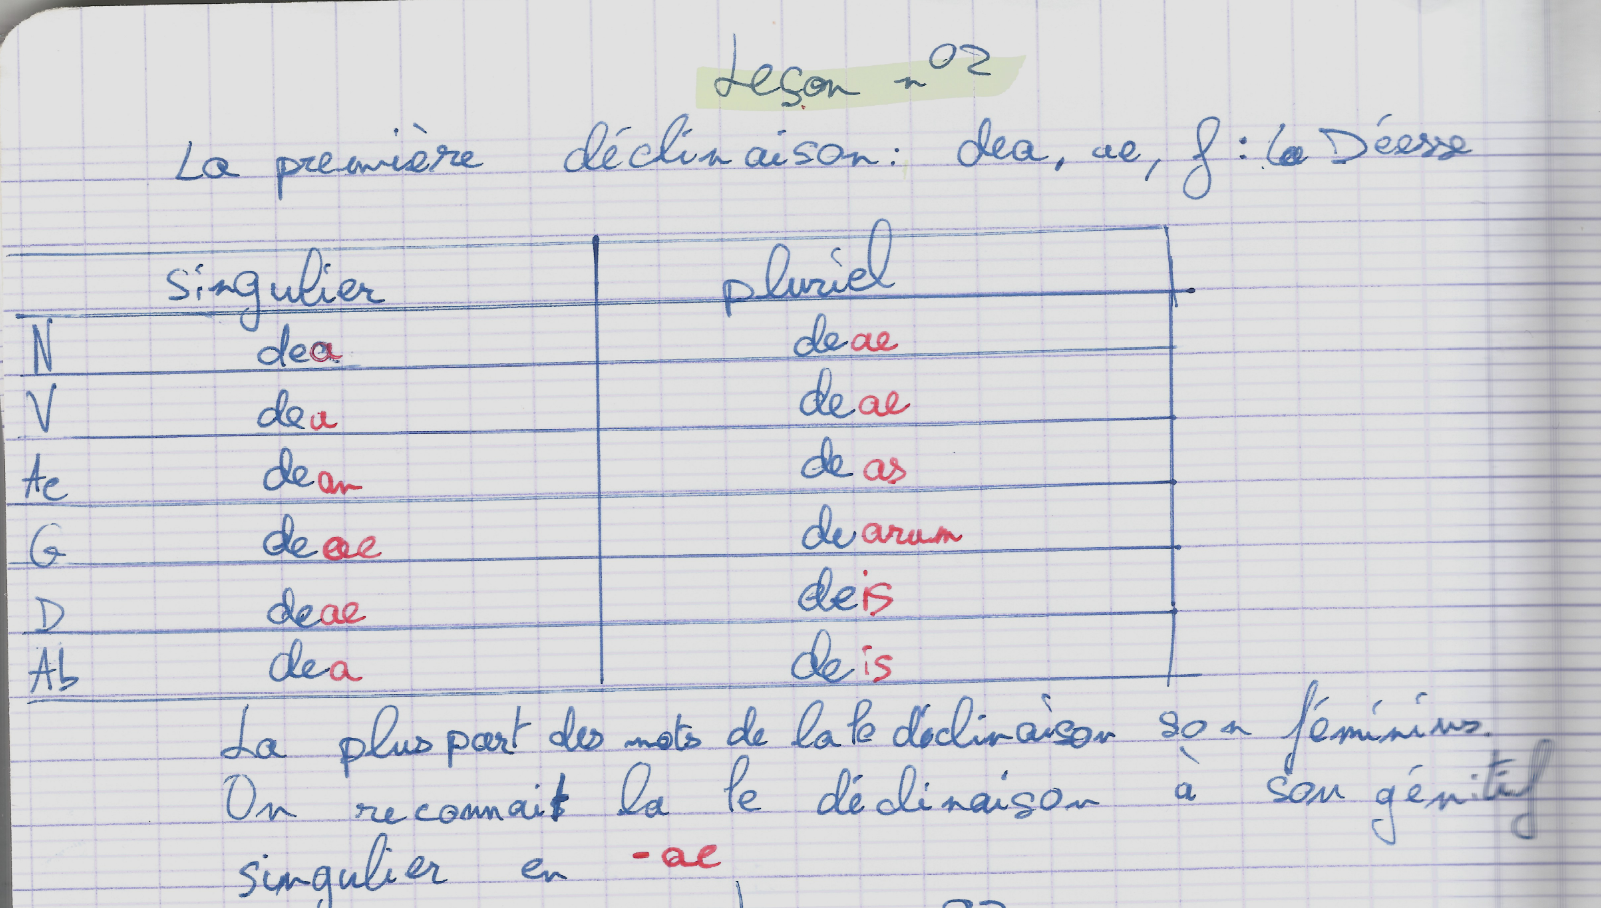 Leçon n°2
La première déclinaison: dea, ae, f: la Déesse
singulier pluriel
N dea deae
V dea deae
Ac deam deas
G deae dearum
D deae deis
Ab dea deis
La plus part des mots de la 1e déclinaison son féminins.
On reconnait la 1e déclinaison à son génitif
singulier en -ae